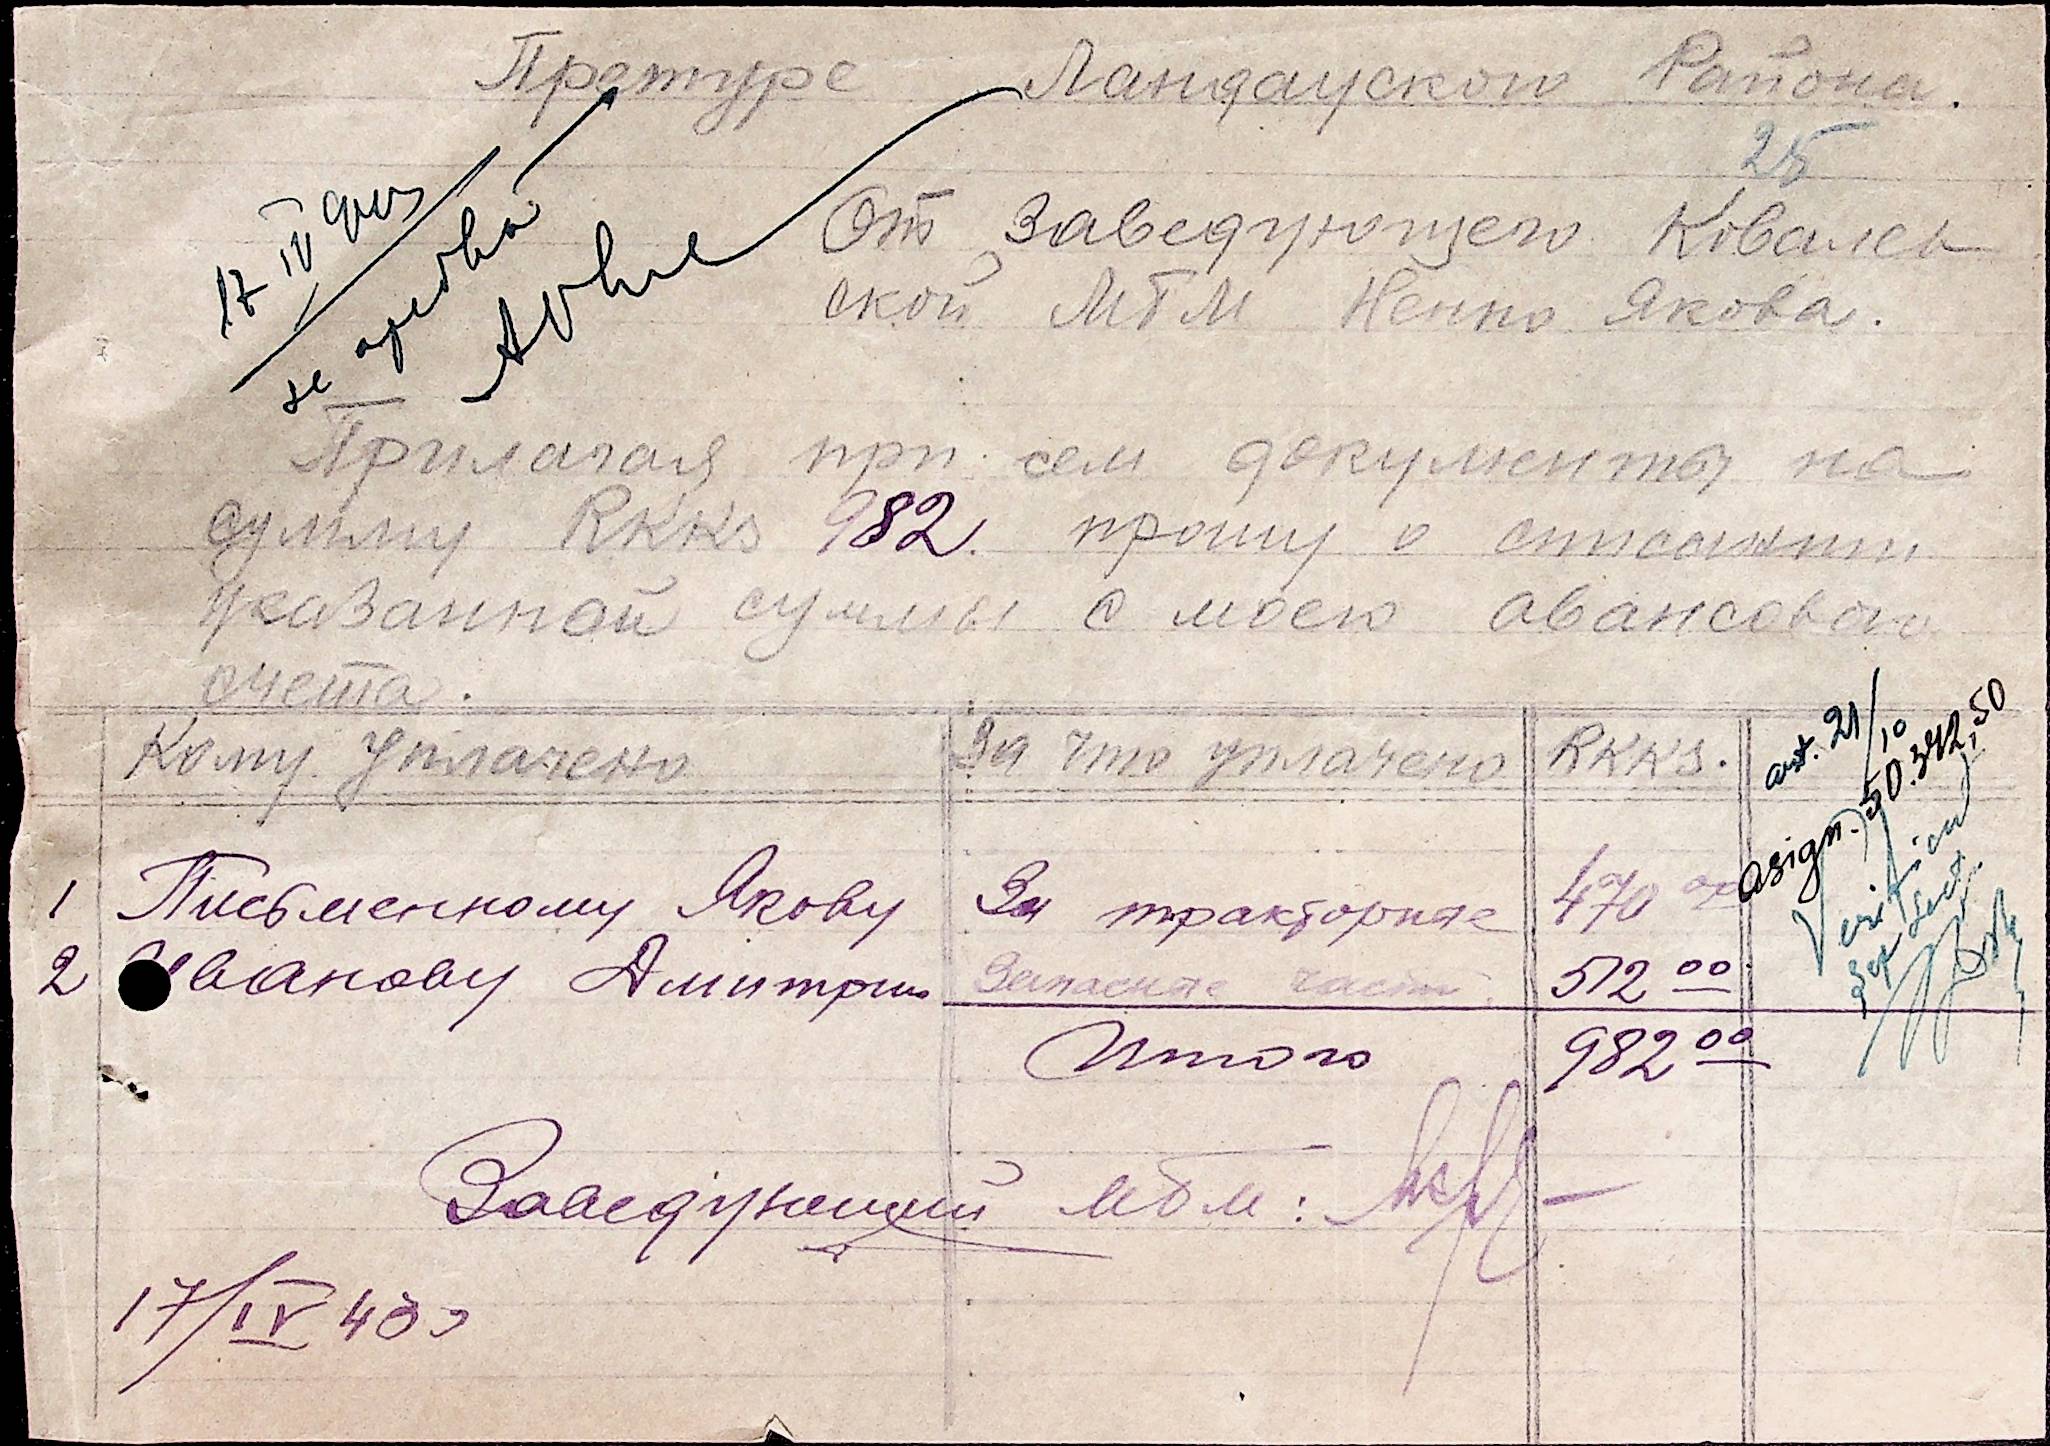 Претуре Ландауского Района.
25
От Заведующего Ковалев
ской МТМ Ненно Якова.
17 IV
се аребва
Прилагая при сем документы на
сумму RKKS 982. прошу о списании
указанной суммы с моего авансового
счета.
Кому уплачено За что уплачено RKKS.
art. 21/10
asign. 50.342,50
Verificat
Șef Sect.
1 Письменному Якову За тракторные 470 00
2 Иванову Дмитрию Запасные части. 512 00
Итого 982 00
Заведующий МТМ:
17/IV 43 г